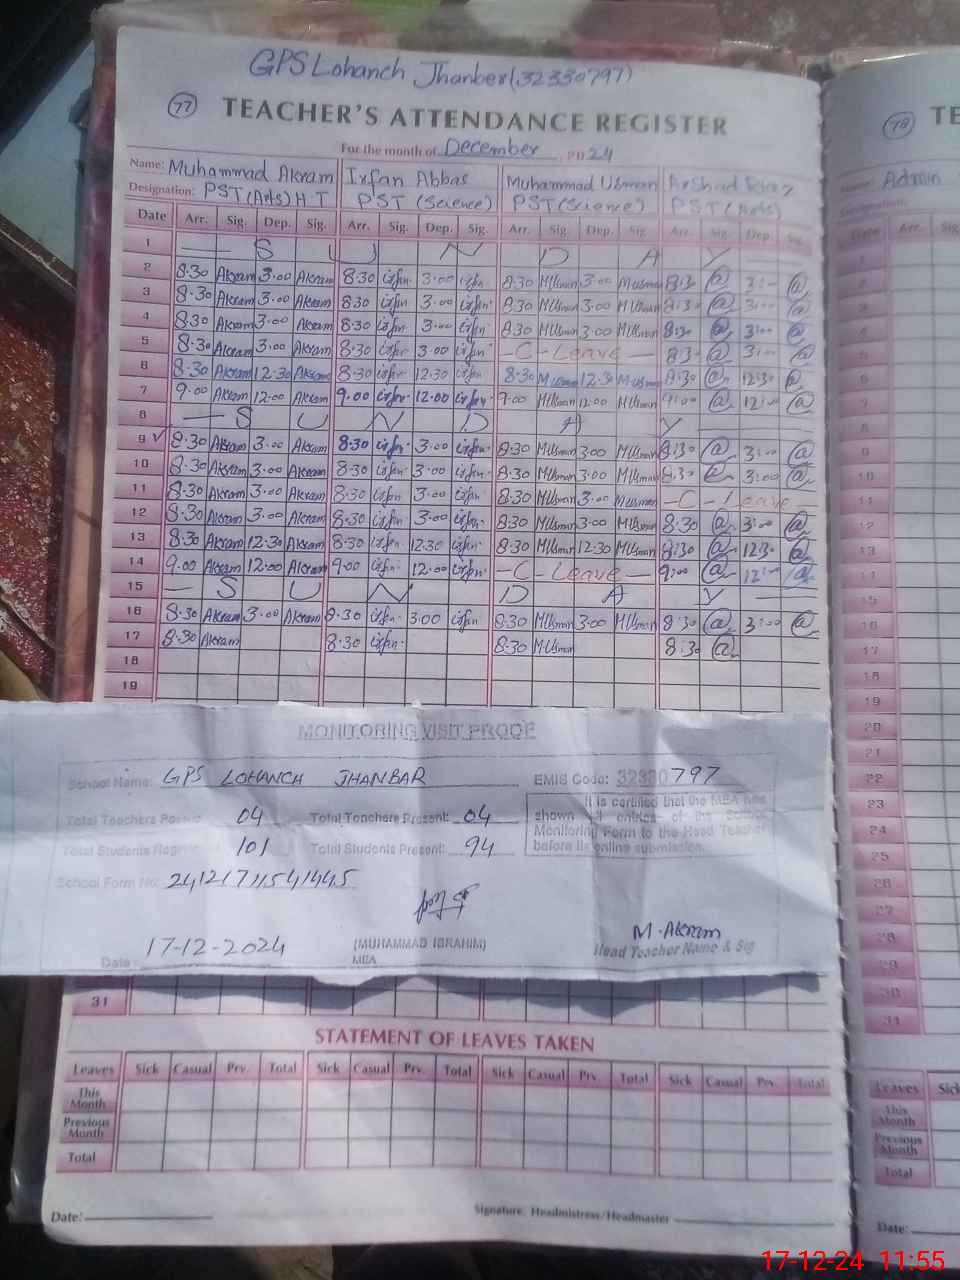 GPS Lohanch Jhanber (32330797)
77 TEACHER'S ATTENDANCE REGISTER
For the month of December, 24
Name: Muhammad Akram Irfan Abbas Muhammad Usman Arshad
Designation: PST (Arts) H T PST (Science) PST (Science) PST (Arts)
Date Arr. Sig. Dep. Sig. Arr. Sig. Dep. Sig. Arr. Sig. Dep. Sig. Arr. Sig. Dep. Sig.
1 — S U N D A Y —
2 8:30 Akram 3:00 Akram 8:30 irfn 3:00 irfn 8:30 MUsman 3:00 MUsman 8:30 @ 3:00 @
3 8:30 Akram 3:00 Akram 8:30 irfn 3:00 irfn 8:30 MUsman 3:00 MUsman 8:30 @ 3:00 @
4 8:30 Akram 3:00 Akram 8:30 irfn 3:00 irfn 8:30 MUsman 3:00 MUsman 8:30 @ 3:00 @
5 8:30 Akram 3:00 Akram 8:30 irfn 3:00 irfn — C - Leave — 8:30 @ 3:00 @
6 8:30 Akram 12:30 Akram 8:30 irfn 12:30 irfn 8:30 MUsman 12:30 MUsman 8:30 @ 12:30 @
7 9:00 Akram 12:00 Akram 9:00 irfn 12:00 irfn 9:00 MUsman 12:00 MUsman 9:00 @ 12:00 @
8 — S U N D A Y —
9 ✓ 8:30 Akram 3:00 Akram 8:30 irfn 3:00 irfn 8:30 MUsman 3:00 MUsman 8:30 @ 3:00 @
10 8:30 Akram 3:00 Akram 8:30 irfn 3:00 irfn 8:30 MUsman 3:00 MUsman 8:30 @ 3:00 @
11 8:30 Akram 3:00 Akram 8:30 irfn 3:00 irfn 8:30 MUsman 3:00 MUsman — C - Leave
12 8:30 Akram 3:00 Akram 8:30 irfn 3:00 irfn 8:30 MUsman 3:00 MUsman 8:30 @ 3:00 @
13 8:30 Akram 12:30 Akram 8:30 irfn 12:30 irfn 8:30 MUsman 12:30 MUsman 8:30 @ 12:30 @
14 9:00 Akram 12:00 Akram 9:00 irfn 12:00 irfn — C - Leave — 9:00 @ 12:00 @
15 — S U N D A Y —
16 8:30 Akram 3:00 Akram 8:30 irfn 3:00 irfn 8:30 MUsman 3:00 MUsman 8:30 @ 3:00 @
17 8:30 Akram 8:30 irfn 8:30 MUsman 8:30 @
18
19
MONITORING VISIT PROOF
School Name: GPS LOHANCH JHANBAR EMIS Code: 32330797
Total Teachers Posted: 04 Total Teachers Present: 04
Total Students 101 Total Students Present: 94
It is certified that the MEA has
shown all entries of the School
Monitoring Form to the Head Teacher
before its online submission.
School Form No: 24121711541445
Date: 17-12-2024
(MUHAMMAD IBRAHIM)
MEA
M. Akram
Head Teacher Name & Sig
31
STATEMENT OF LEAVES TAKEN
Leaves Sick Casual Prv. Total Sick Casual Prv. Total Sick Casual Prv. Total Sick Casual Prv. Total
This Month
Previous Month
Total
Date: Signature: Headmistress/Headmaster
78 TE
Admin
Date Arr. Sig.
1
2
3
4
5
6
7
8
9
10
11
12
13
14
15
16
17
18
19
20
21
22
23
24
25
26
27
28
29
30
31
Leaves Sick
This Month
Previous Month
Total
Date:
17-12-24 11:55